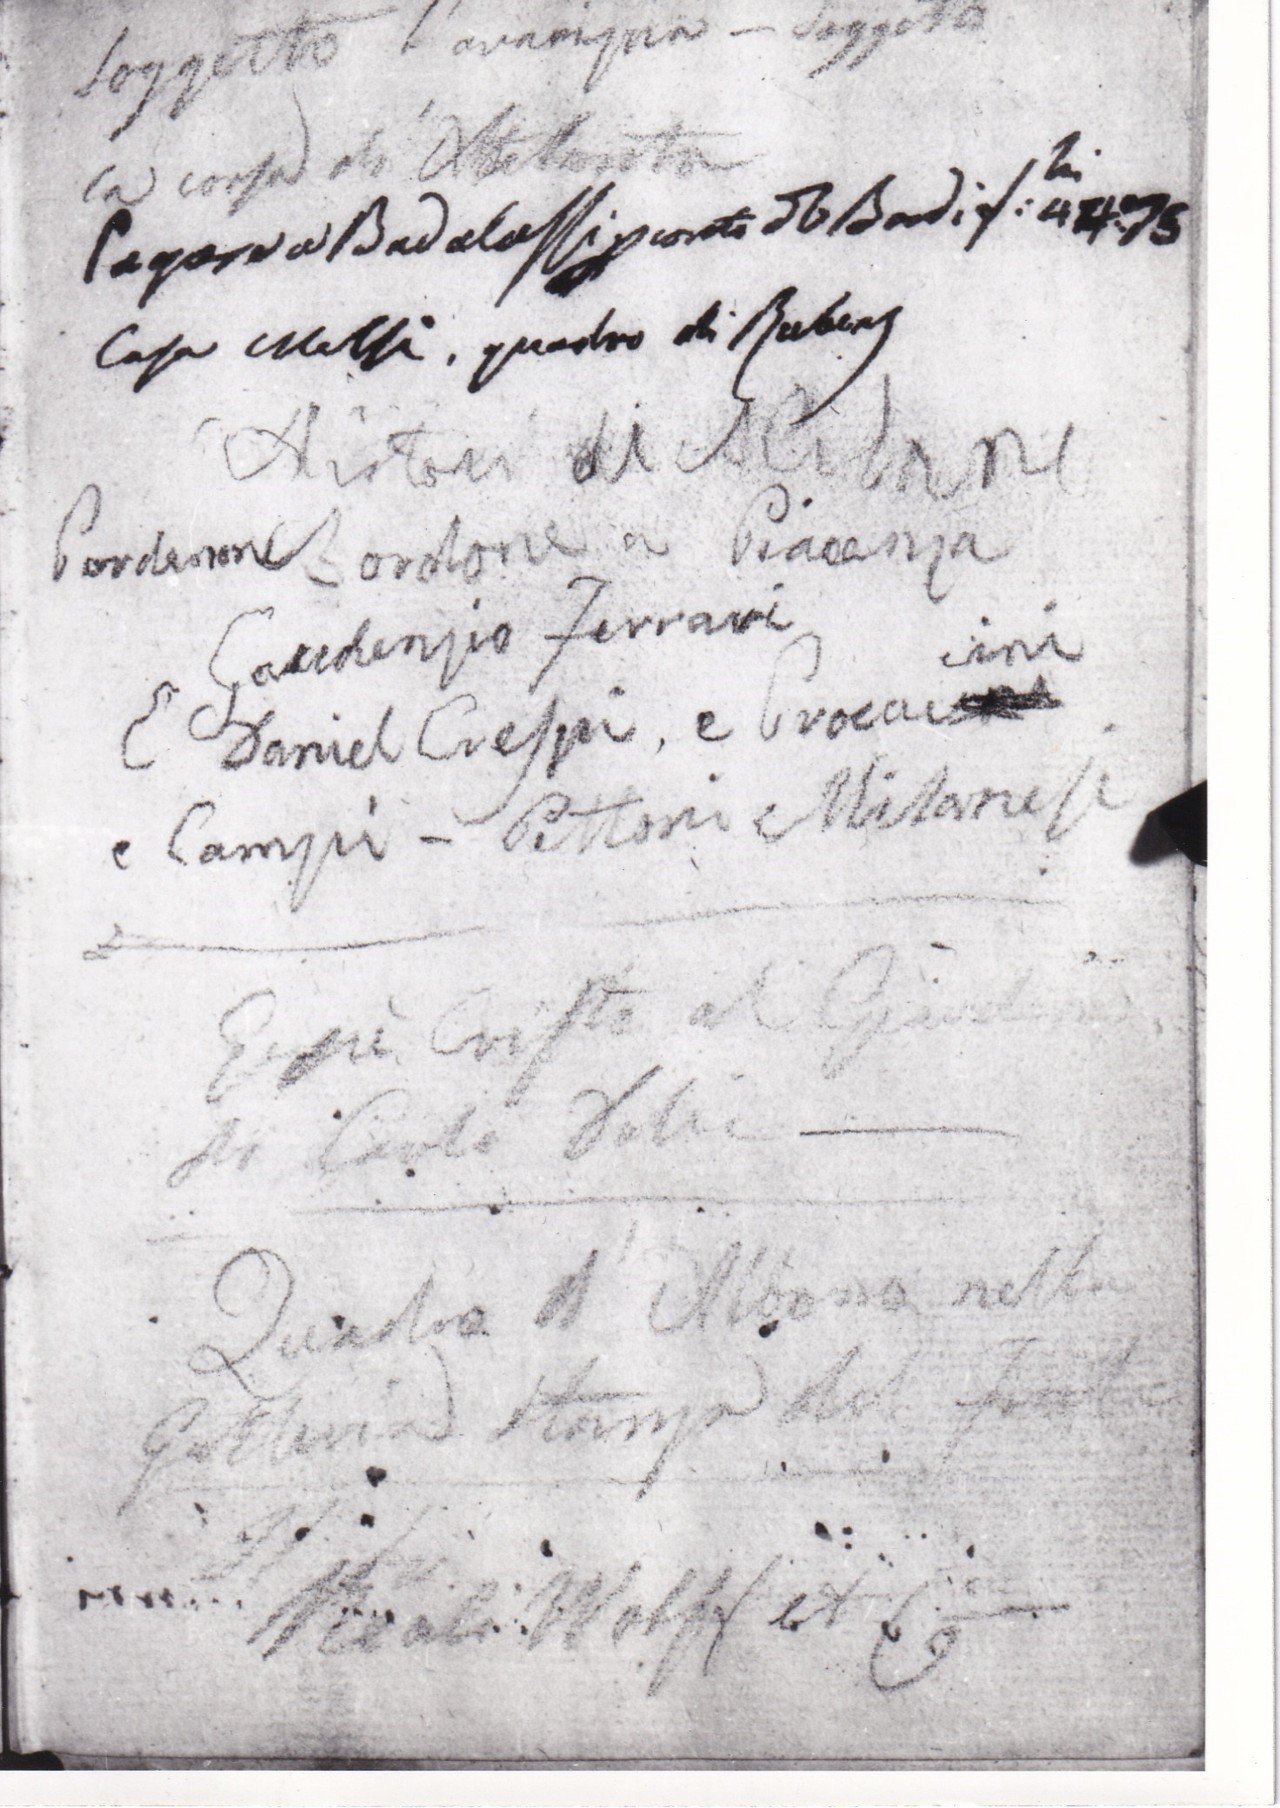 Soggetto l'avarizia — Soggetto
la corsa di Attalanta
Pagare a Badalassi per conto di Bardi f: lin 44:75
Casa Melsi, quadro di Rubens
Pittori di Milano
Pordenone Bordone a Piacenza
Gaudenzio Ferrari
E Daniel Crespi, e Procacini
e Campi - Pittori Milanesi
Gesù Cristo al Giardino
di Carlo Dolci
Quadro d'Albano nella
Galleria Stampa del
Wolff et C